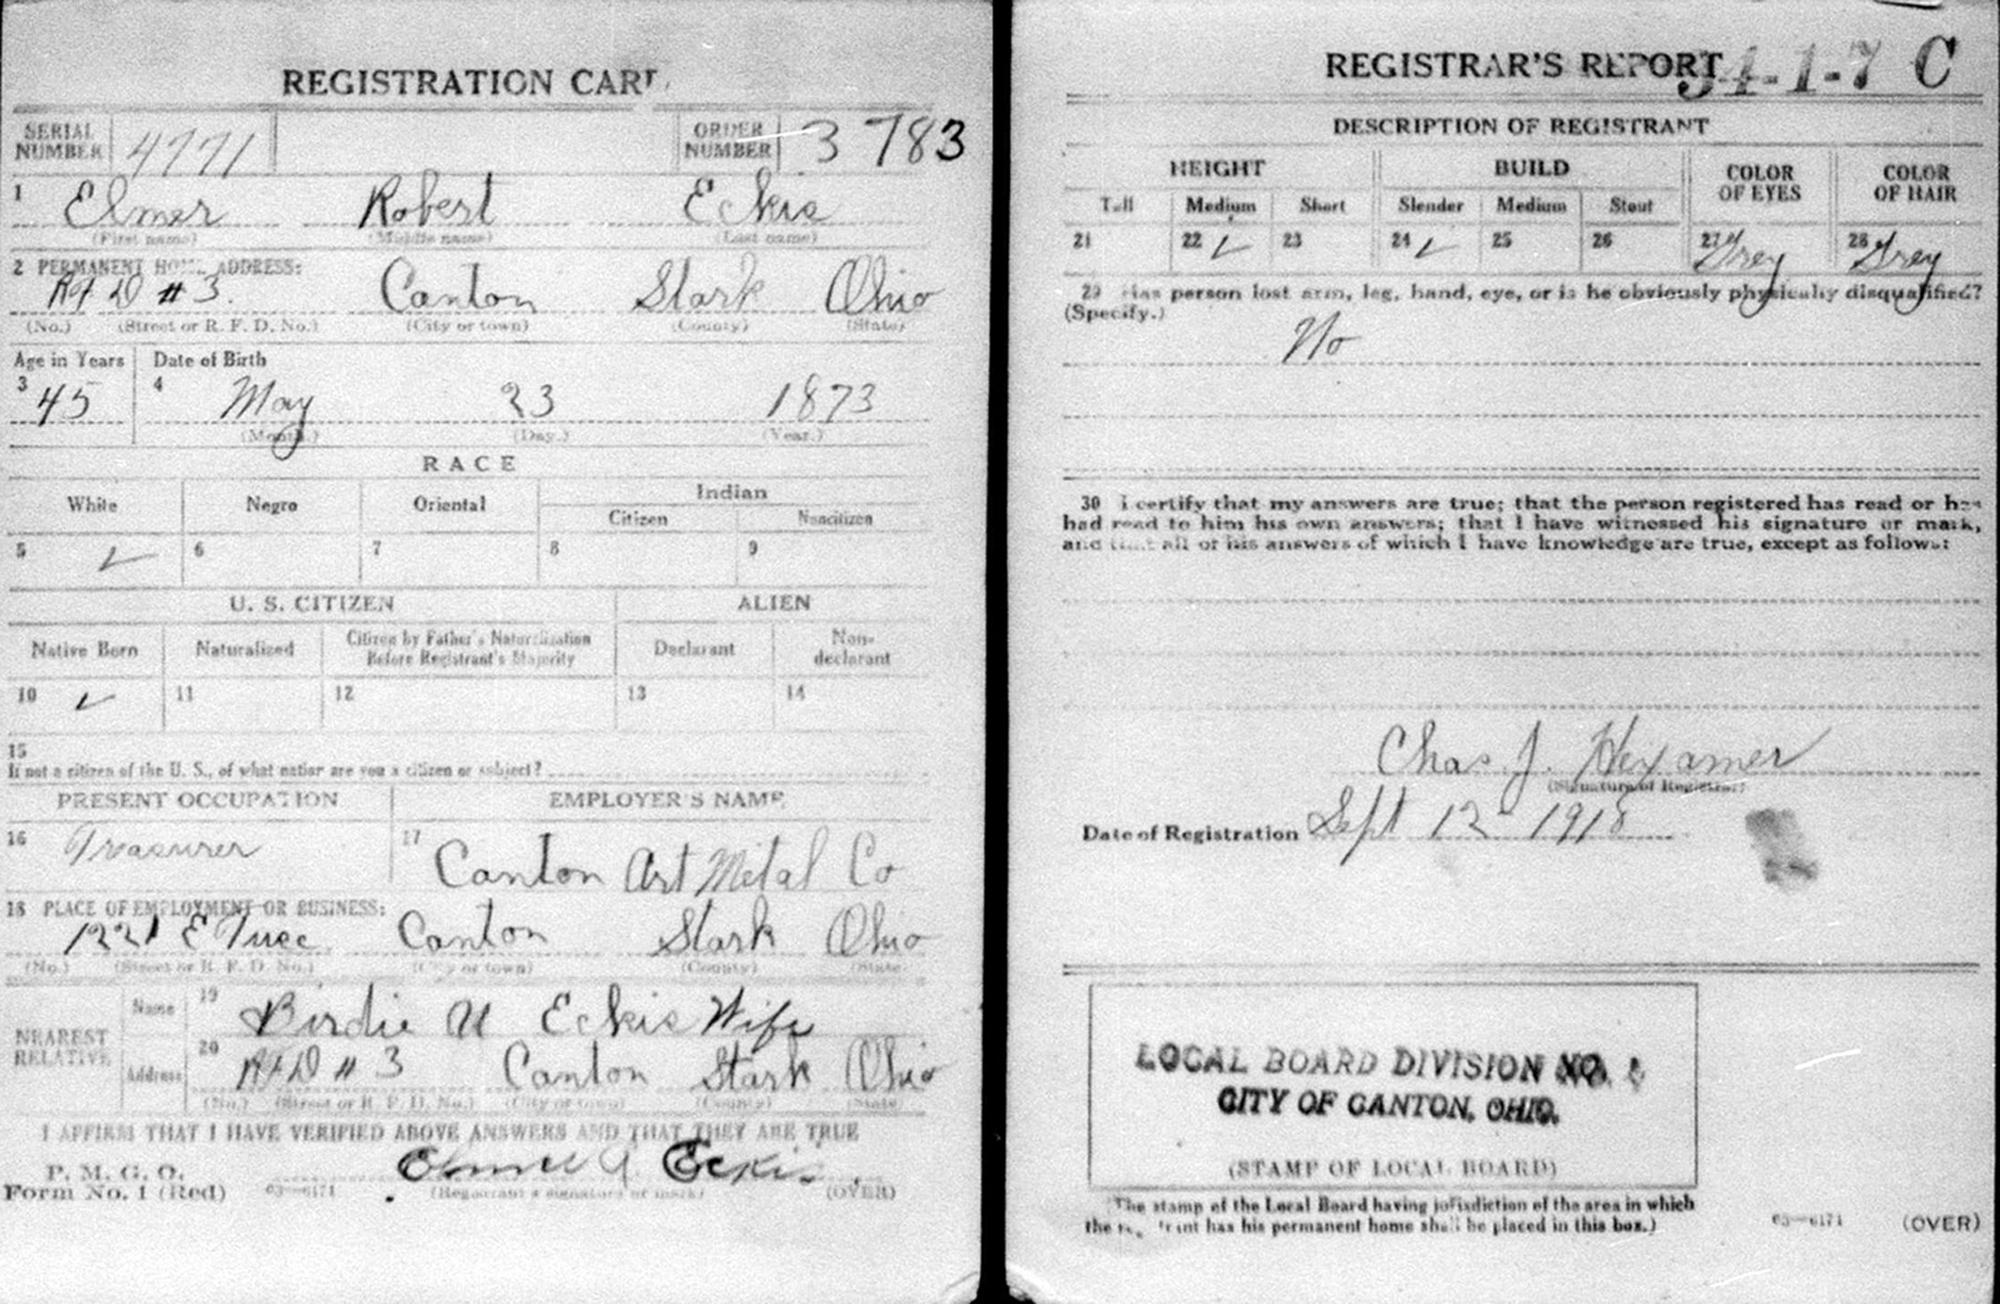 REGISTRATION CARD
SERIAL NUMBER 4771 ORDER NUMBER 3 783
1 Elmer Robert Eckis
(First name) (Middle name) (Last name)
2 PERMANENT HOME ADDRESS:
R F D # 3 Canton Stark Ohio
(No.) (Street or R. F. D. No.) (City or town) (County) (State)
Age in Years Date of Birth
3 45 4 May 23 1873
(Month.) (Day.) (Year.)
RACE
White Negro Oriental Indian
Citizen Noncitizen
5 ✓ 6 7 8 9
U. S. CITIZEN ALIEN
Native Born Naturalized Citizen by Father's Naturalization Before Registrant's Majority Declarant Non-declarant
10 ✓ 11 12 13 14
15
If not a citizen of the U. S., of what nation are you a citizen or subject?
PRESENT OCCUPATION EMPLOYER'S NAME
16 Treasurer 17 Canton Art Metal Co
18 PLACE OF EMPLOYMENT OR BUSINESS:
1221 E Tusc Canton Stark Ohio
(No.) (Street or R. F. D. No.) (City or town) (County) (State)
NEAREST RELATIVE Name 19 Birdie U Eckis Wife
Address 20 RFD # 3 Canton Stark Ohio
(No.) (Street or R. F. D. No.) (City or town) (County) (State)
I AFFIRM THAT I HAVE VERIFIED ABOVE ANSWERS AND THAT THEY ARE TRUE
P. M. G. O.
Form No. 1 (Red) 03—6171 Elmer R Eckis
(Registrant's signature or mark) (OVER)
REGISTRAR'S REPORT 34-1-7 C
DESCRIPTION OF REGISTRANT
HEIGHT BUILD COLOR OF EYES COLOR OF HAIR
Tall Medium Short Slender Medium Stout
21 22 ✓ 23 24 ✓ 25 26 27 Grey 28 Grey
29 Has person lost arm, leg, hand, eye, or is he obviously physically disqualified?
(Specify.)
No
30 I certify that my answers are true; that the person registered has read or has
had read to him his own answers; that I have witnessed his signature or mark,
and that all of his answers of which I have knowledge are true, except as follows:
Chas. J. Hexamer
(Signature of Registrar)
Date of Registration Sept 12 - 1918
LOCAL BOARD DIVISION NO. 1
CITY OF CANTON, OHIO.
(STAMP OF LOCAL BOARD)
(The stamp of the Local Board having jurisdiction of the area in which
the registrant has his permanent home shall be placed in this box.)
03—6171 (OVER)